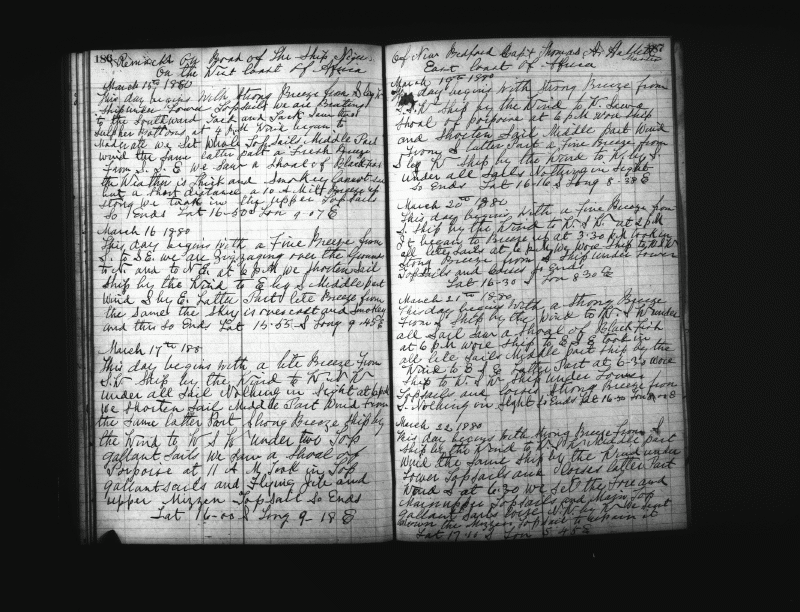 186 Remarks On Board of The Ship Niger
On the West Coast of Africa
March 15th 1880
This day begins with Strong Breeze from S by E
Ship under Lower Topsails we are Beating
to the Southward Tack and Tack Saw
Sulpher Bottoms at 4 PM Wind began to
Moderate we Set Whole Topsails Middle Part
wind the Same latter part a Fresh Breeze
From S. S. E we Saw a Shoal of Blackfish
the Weather is thick and Smokey
but a Short distance a 10 A M Breeze up
strong we took in the upper Topsails
So Ends Lat 16-50 S Lon 9-07 E
March 16 1880
This day begins with a Fine Breeze from
S. to SE. we are Zigzaging over the Ground
to N. and to N E. at 6 P.M we Shorten Sail
Ship by the Wind to E by S Middle part
Wind S by E. Latter Part lite Breeze from
the Same the Sky is overcast and Smokey
and thus So Ends Lat 15-55 S Long 9-45 E
March 17th 188
This day begins with a lite Breeze from
S.W Ship by the Wind to W N W
under all Sail Nothing in Sight at 6 PM
We Shorten Sail Middle Part Wind From
the Same latter Part Strong Breeze Ship by
the Wind to W S W under two Top
gallant Sails We Saw a Shoal of
Porpoise at 11 A M Took in Top
gallant Sails and Flying Jib and
upper Mizzen Topsail So Ends
Lat 16-00 S Long 9-18 E
Of New Bedford Capt Thomas A. Hallett
Master
East Coast of Africa
March 19th 1880
This day begins with Strong Breeze from
S.W. Ship by the Wind to W. Saw a
Shoal of porpoise at 6 P.M wore Ship
and Shorten Sail Middle part Wind
From S latter Part a Fine Breeze from
S by W Ship by the Wind to W. by S.
under all Sails Nothing in Sight
So Ends Lat 16-16 S Long 8-38 E
March 20th 1880
This day begins with a Fine Breeze from
S Ship by the Wind to W.S.W. at 2 P.M
it began to Breeze up at 3-30 P.M took in
all lite Sails at 6 P.M we wore Ship to
Strong Breeze from S Ship under Lower
Topsails and Courses So Ends
Lat 16-30 S Lon 8 30 E
March 21st 1880
This day begins with a Strong Breeze
From S Ship by the Wind to W. S W under
all Sail Saw a Shoal of Blackfish
at 6 P.M wore Ship to E S E took in
all lite Sails Middle part Ship by the
Wind to E S E Latter Part at 6-30 wore
Ship to W. S W. Ship under Lower
Topsails and Courses Strong Breeze from
S Nothing in Sight So Ends Lat 16-30
March 22, 1880
This day begins with Strong Breeze From S
Ship by the Wind to W.S.W. Middle part
Wind the Same Ship by the Wind under
Lower Topsails and Courses latter Part
Wind S at 6.30 we Set the Fore and
Main upper Topsails and Main Top
gallant Sails
down the Mizzen Topsail to repair it
Lat 17-10 S Lon 5-45 E